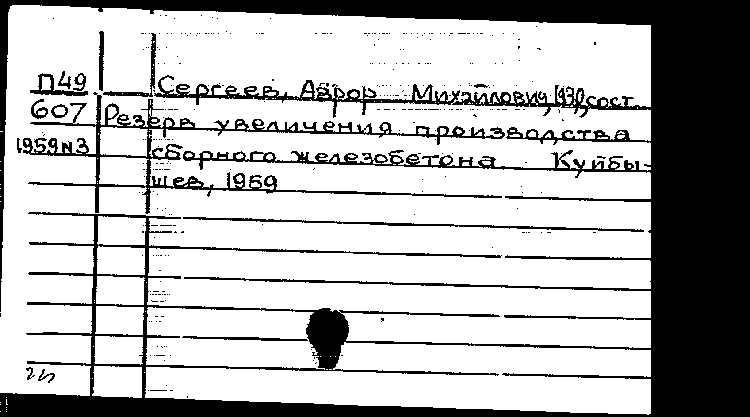 П49 Сергеев, Аврор Михайлович, 1930, сост.
607 Резерв увеличения производства
1959 N3 сборного железобетона. Куйбы-
шев, 1959